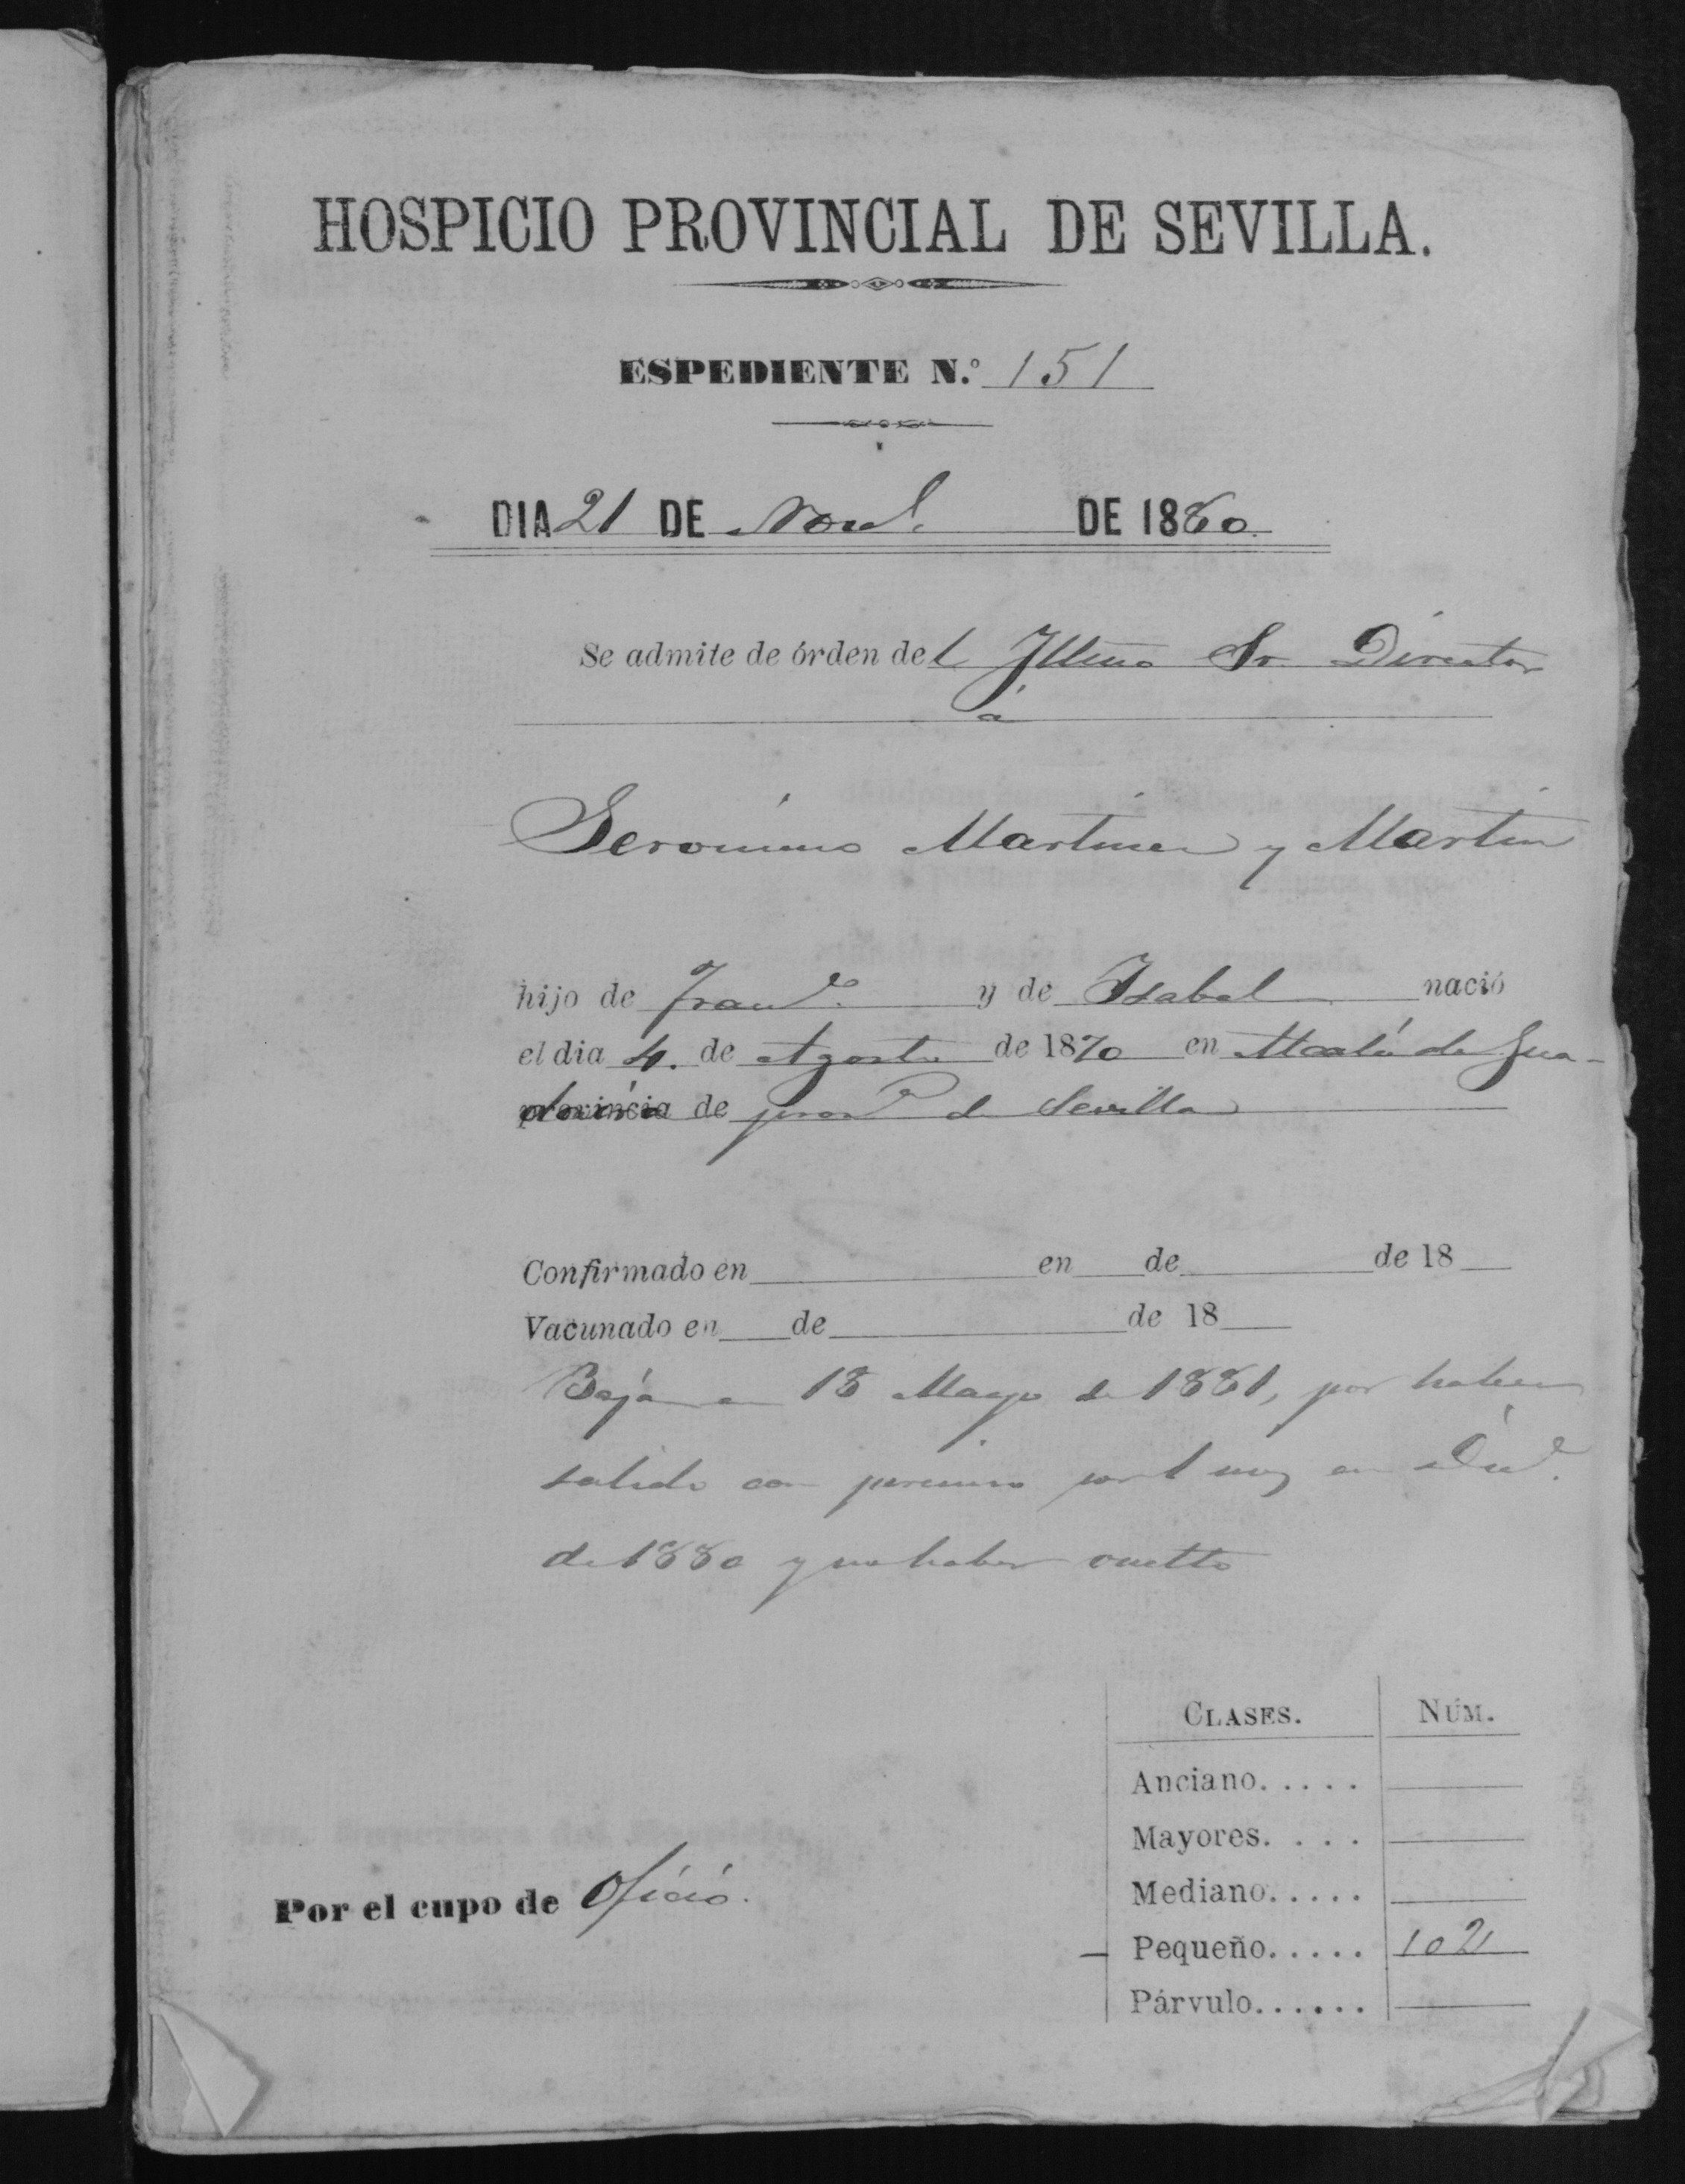 HOSPICIO PROVINCIAL DE SEVILLA.
ESPEDIENTE N.º 151
DIA 21 DE Nove. DE 1880.
Se admite de órden del Illmo Sr Director
á
Geronimo Martinez y Martin
hijo de Franco. y de Isabel nació
el dia 4. de Agosto de 1870 en Alcalá de Gua-
provincia de prova de Sevilla
Confirmado en en de de 18
Vacunado en de de 18
Baja en 18 Mayo de 1881, por haber
salido con permiso por 1 mes en Dice.
de 1880 y no haber vuelto
CLASES. NÚM.
Anciano.....
Mayores....
Mediano.....
Pequeño..... 102
Párvulo......
Por el cupo de Oficio.